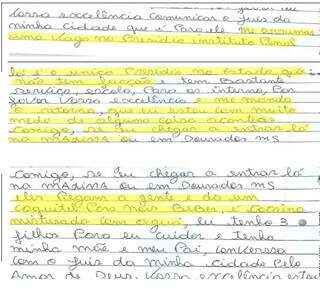 Vossa excelência comunicar o juis da
minha cidade que é Para ele me arrumar
uma vaga no Presidio instituto Penal
lá é o unico Presidio no estado que
não tem facção e tem bastante
serviço, escola, Para os interno, Por
favor Vossa excelência e me manda
o retorno, que eu estou com muito
medo de alguma coisa acontece
Comigo, se eu chegar a entrar lá
na mÁxima ou em Dourados MS
Comigo, se eu chegar a entrar lá
na mÁxima ou em Dourados MS
eles Pegam a gente e da um
coquitel Para nóis BeBer, é Cocaina
misturado com agua, eu tenho 3
filhos Para eu cuidar e tenho
minha mãe e meu Pai, converssa
com o juis da minha cidade Pelo
Amor de Deus. Vossa excelência estou